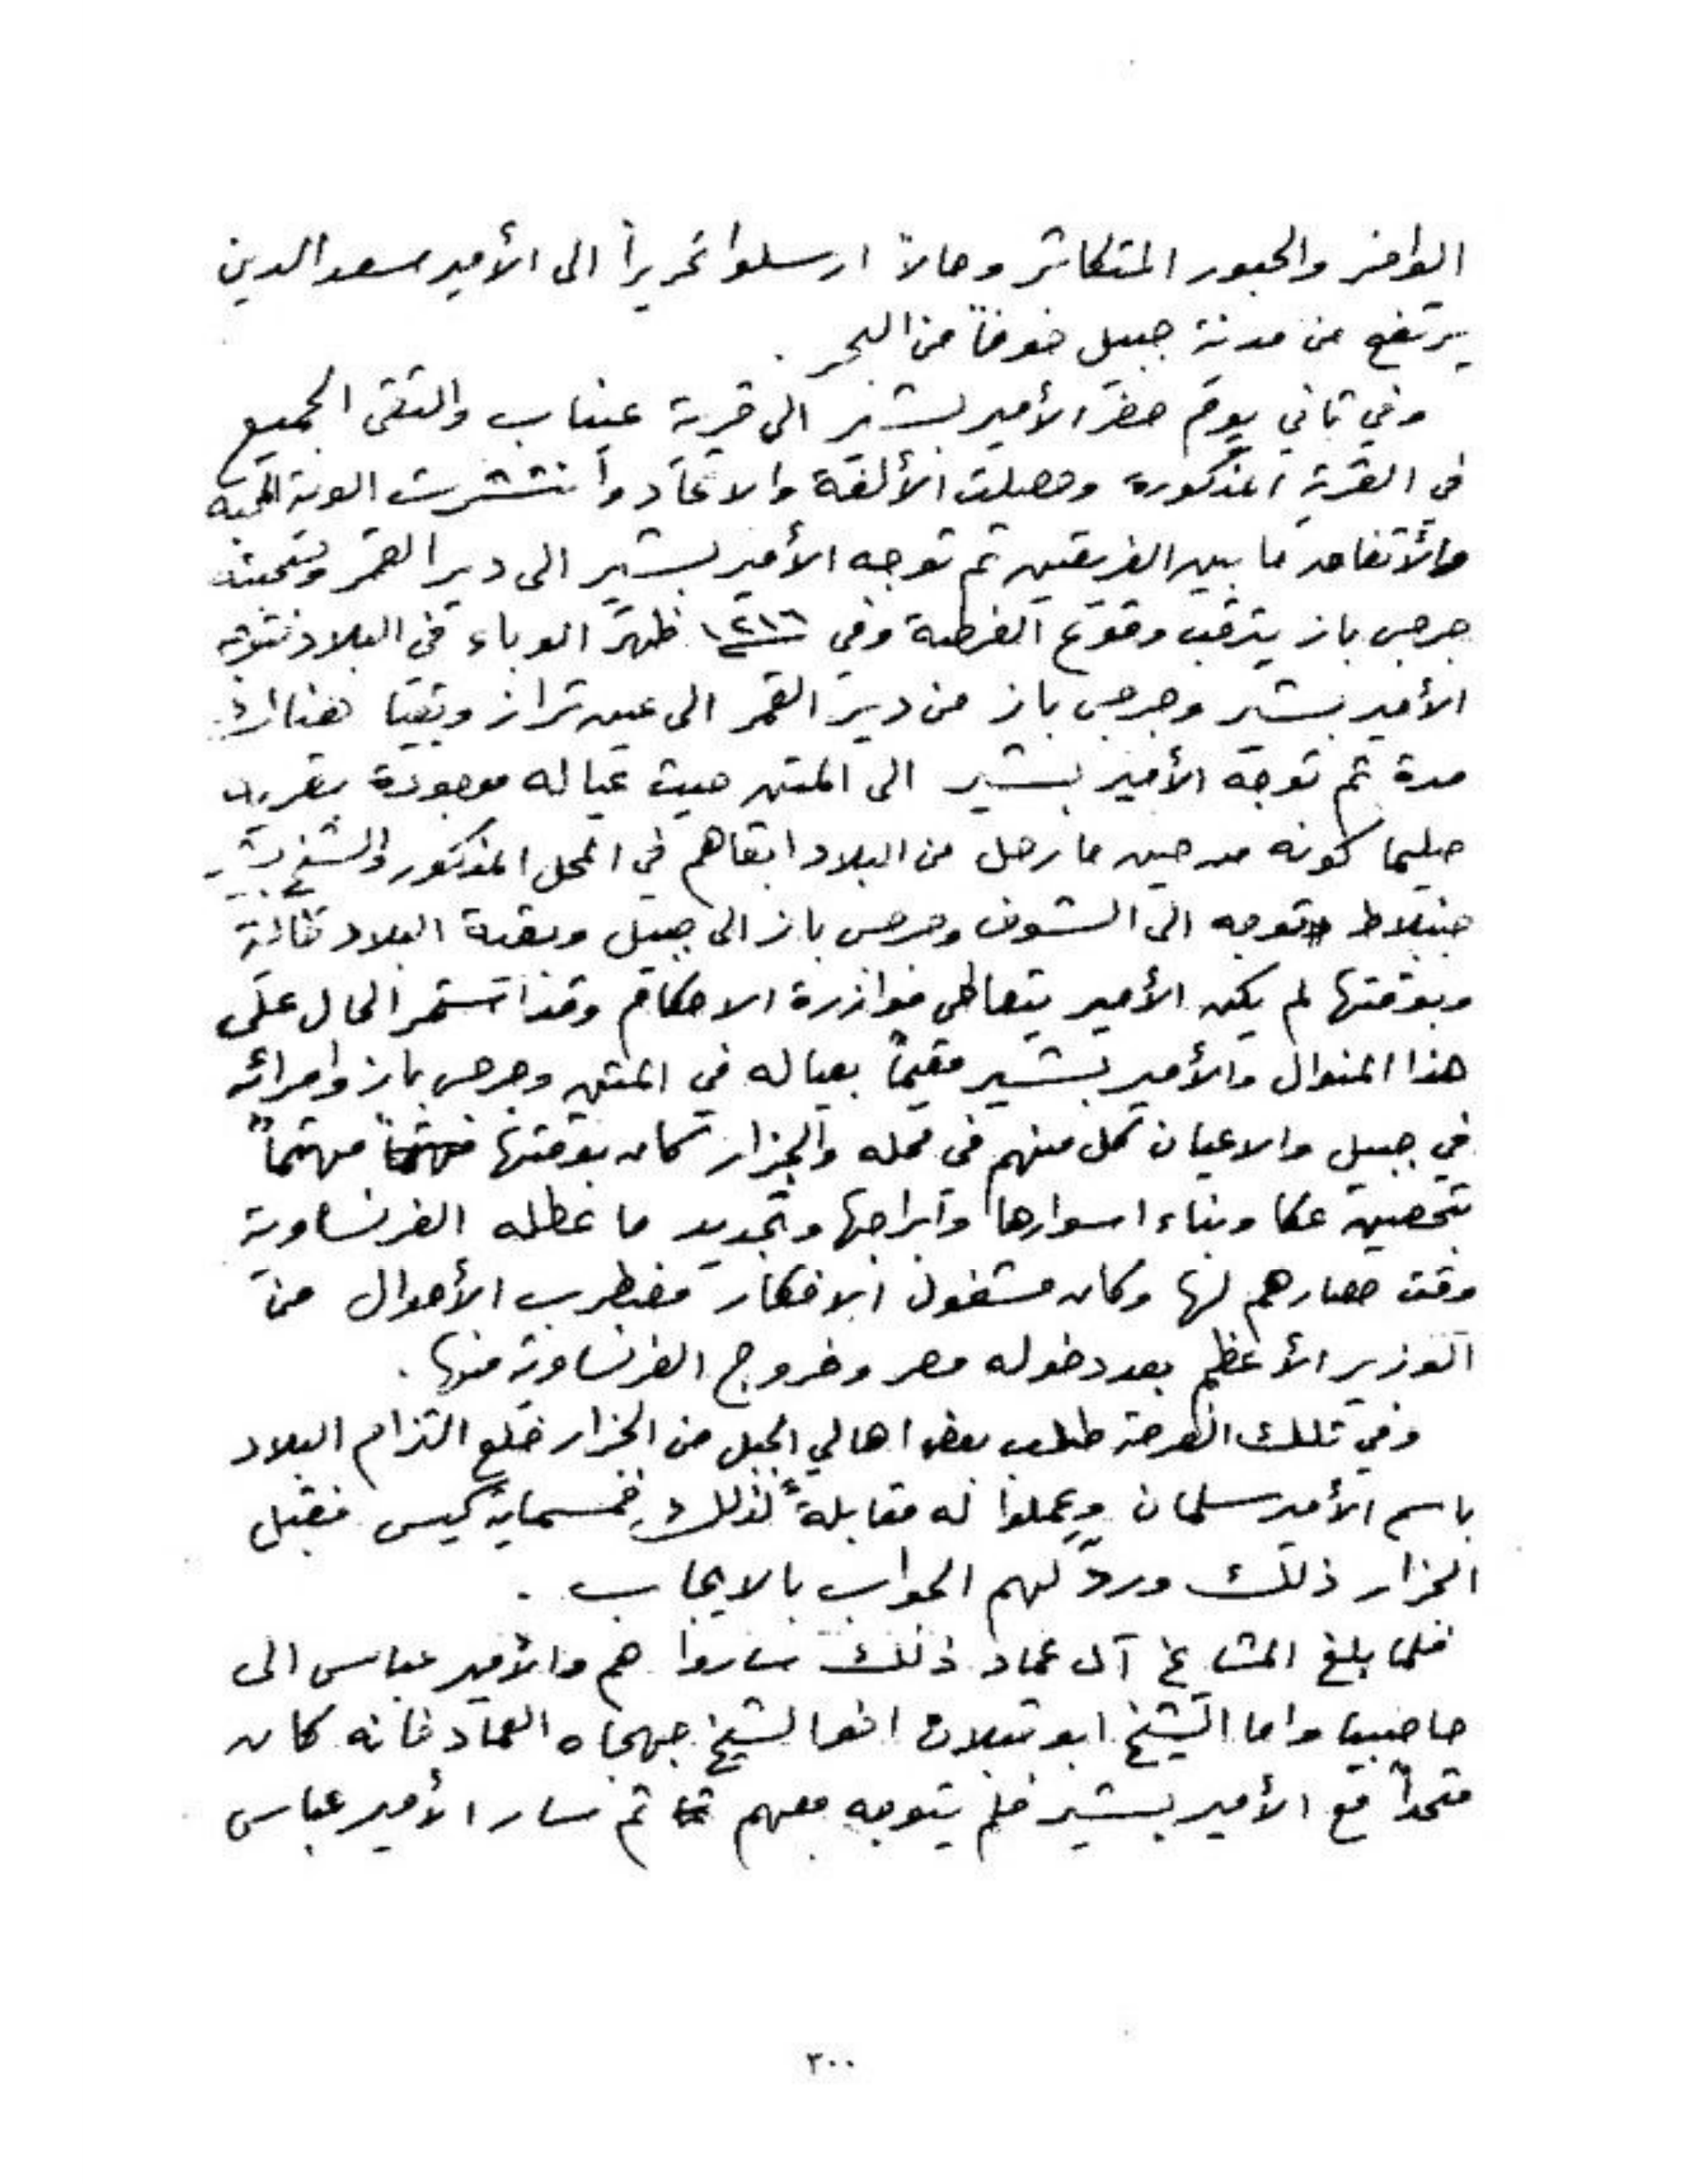 الوافر والحبور المتكاثر وحالاً ارسلوا تحريراً الى الأمير سعد الدين
يرتفع من مدنة جبيل خوفاً من البحر .
وفي ثاني يوم حضر الأمير بشير الى قرية عيناب والتقى الجميع
في القرية المذكورة وحصلت الألفة والاتحاد وأنتشرت الوية المحبة
والأتفاق ما بين الفريقين ثم توجه الأمير بشير الى دير القمر وبمعيته
جرجس باز يترقب وقوع الفرطة وفي ١٢١٦ ظهر الوباء في البلاد فتوجه
الأمير بشير وجرجس باز من دير القمر الى عين تراز وبقيا هناك
مدة ثم توجه الأمير بشير الى المتن حيث عياله موجودة بقرية
صليما كونه من حين ما رحل من البلاد ابقاهم في المحل المذكور والشيخ بشير
جنبلاط توجه الى الشوف وجرجس باز الى جبيل وبقية البلاد
وبوقتها لم يكن الأمير يتعاطى موازرة الاحكام وقد استمر الحال على
هذا المنوال والأمير بشير مقيماً بعياله في المتن وجرجس باز وامرائه
في جبيل والاعيان كل منهم في محله والجزار كان بوقتها مهتماً
بتحصين عكا وبناء اسوارها وابراجها وتجديد ما عطله الفرنساوية
وقت حصارهم لها وكان مشغول الافكار مضطرب الأحوال من
الوزير الأعظم بعد دخوله مصر وخروج الفرنساوية منها .
وفي تلك الفرصة طلب بعض اهالي الجبل من الجزار خلع التزام البلاد
باسم الأمير سلمان وعملوا له مقابلةً لذلك خمسماية كيس فقبل
الجزار ذلك وردّ لهم الجواب بالايجاب .
فلما بلغ المشايخ آل عماد ذلك ساروا هم والأمير عباس الى
حاصبيا واما الشيخ ابو قبلان اخو الشيخ جهجاه العماد فانه كان
متحداً مع الأمير بشير فلم يتوجه معهم ثم سار الأمير عباس
٣٠٠